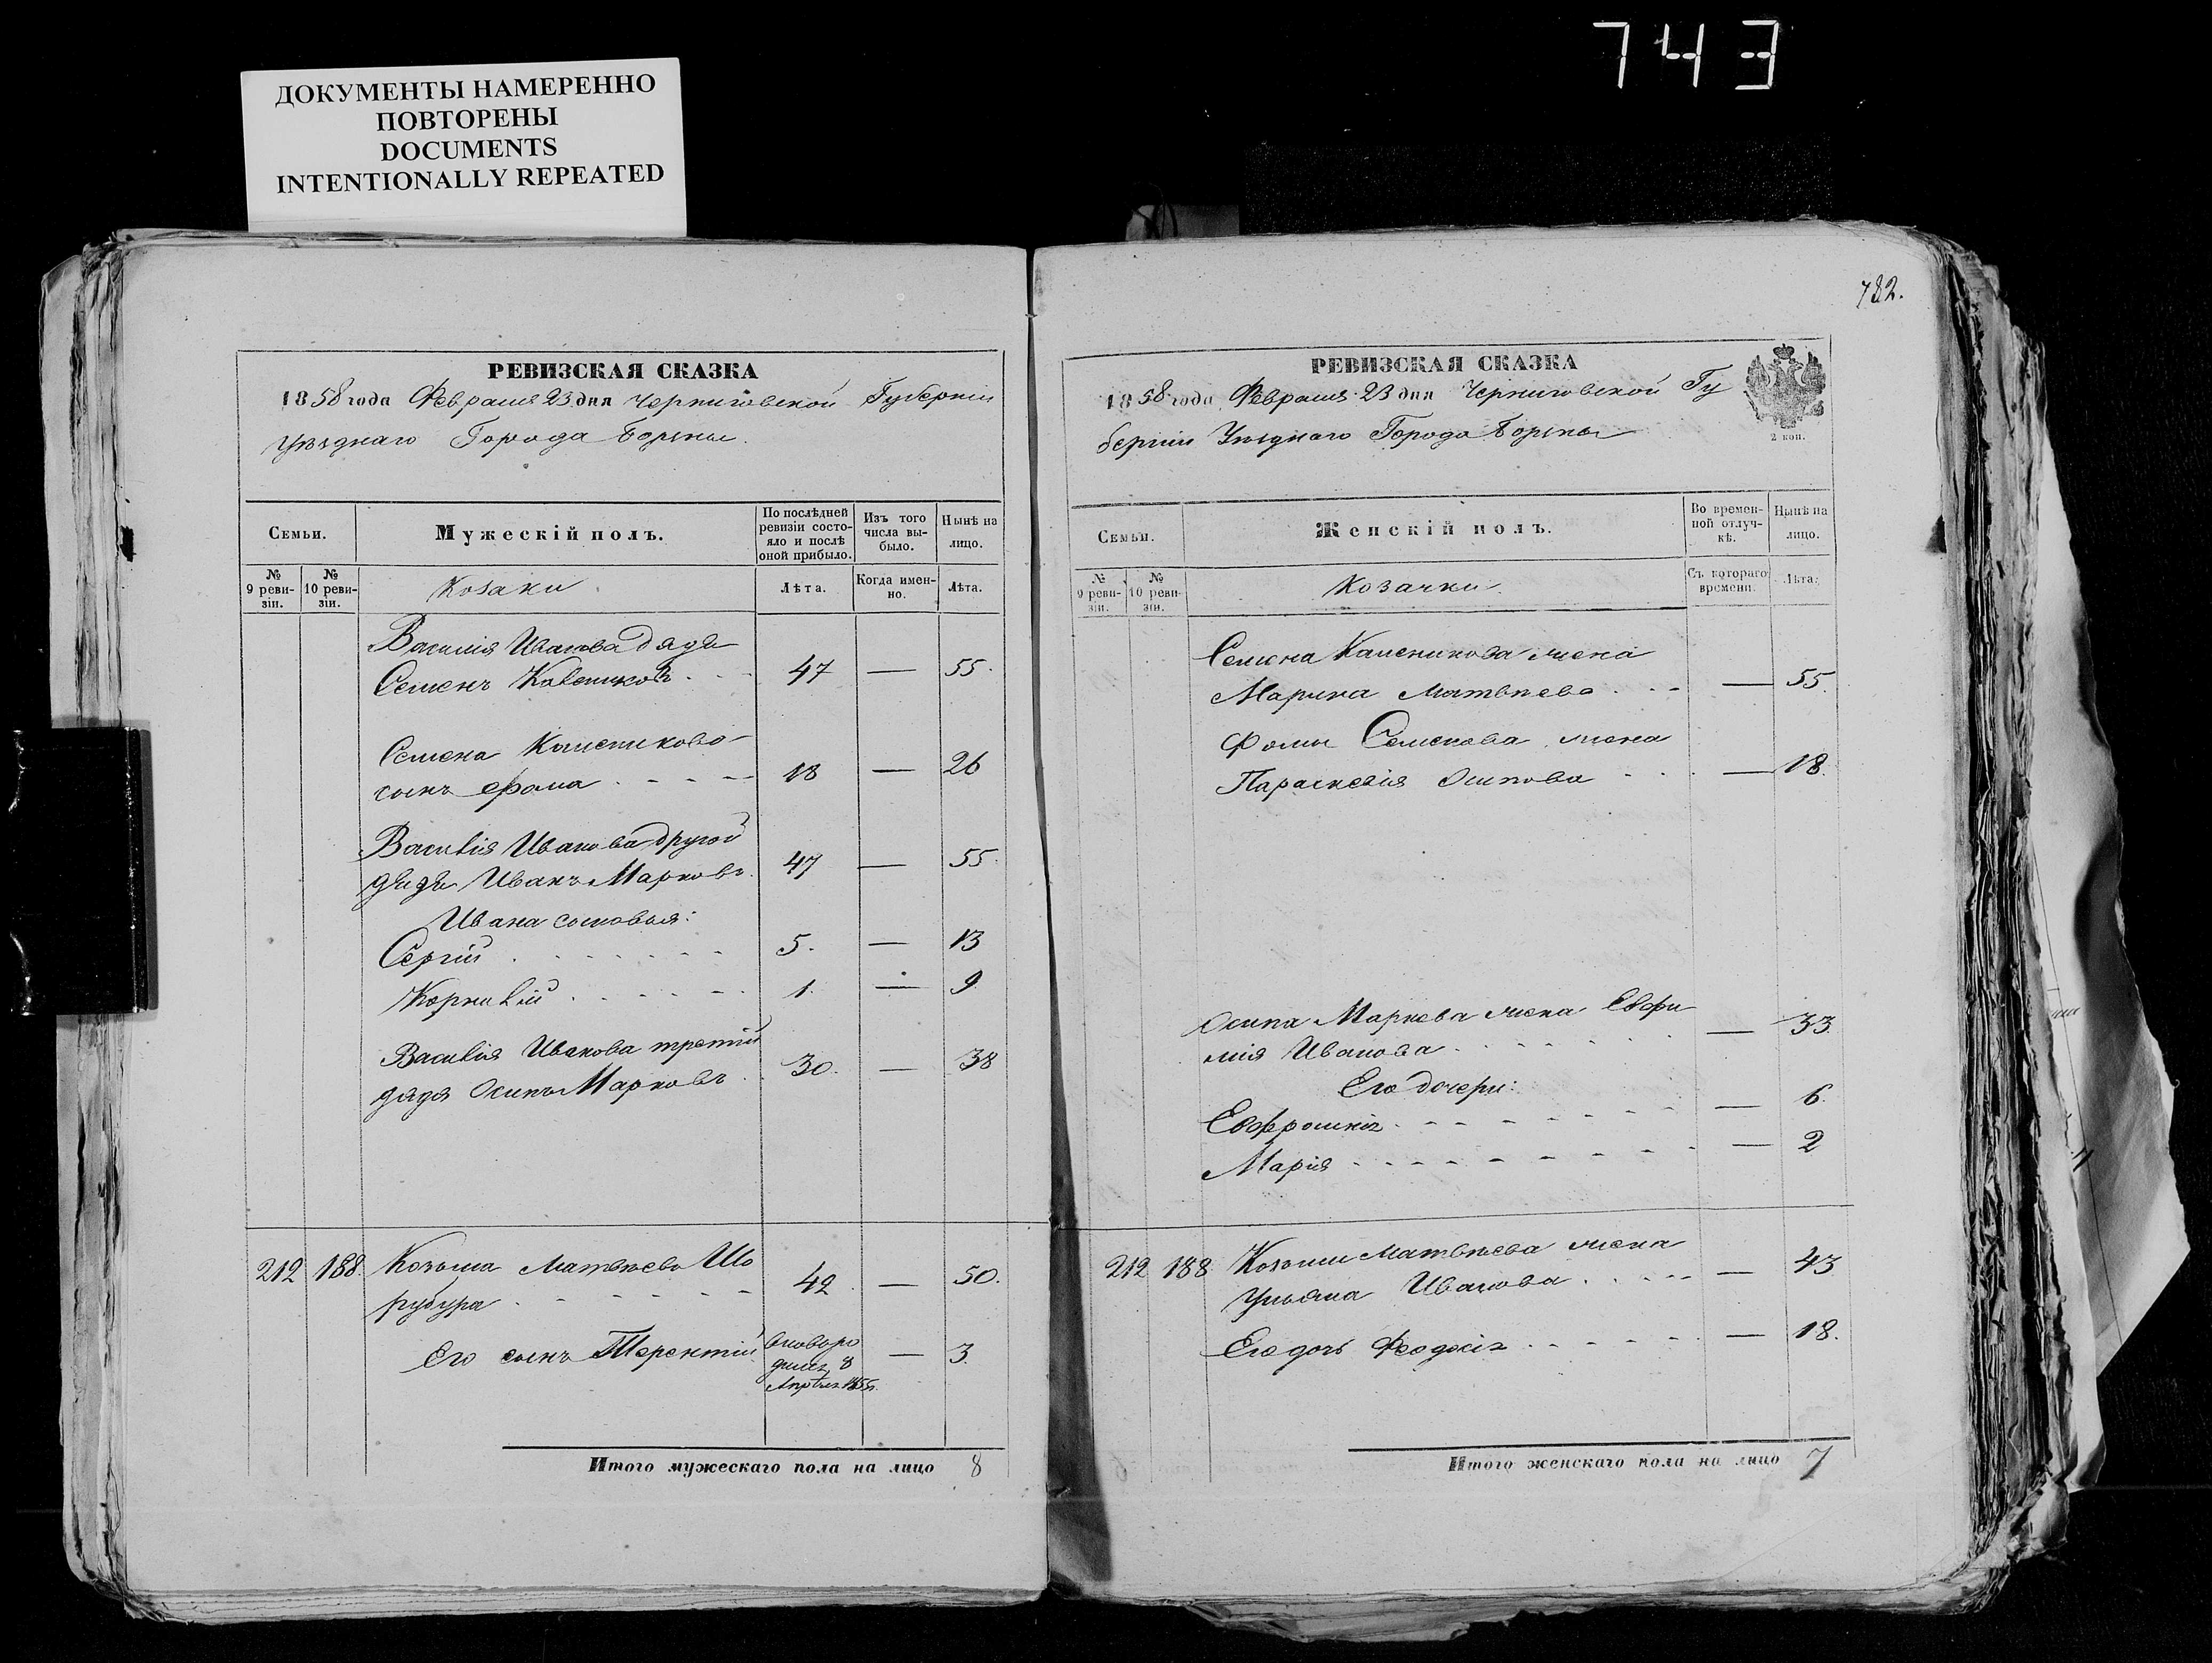 743
ДОКУМЕНТЫ НАМЕРЕННО
ПОВТОРЕНЫ
DOCUMENTS
INTENTIONALLY REPEATED
РЕВИЗСКАЯ СКАЗКА
1858 года Февраля 23 дня Черниговской Губерніи
Уѣзднаго Города Борзны.
Семьи.
Мужескій полъ.
По послѣдней
ревизіи состо-
яло и послѣ
оной прибыло.
Изъ того
числа вы-
было.
Нынѣ на
лицо.
№
9 реви-
зіи.
№
10 реви-
зіи.
Козаки
Лѣта.
Когда имен-
но.
Лѣта.
Василія Иванова дядя
Семенъ 47 — 55.
Семена
сынъ Фома 18 — 26
Василія Иванова другой
дядя Иванъ Марковъ 47 — 55.
Ивана сыновья:
Сергій 5. — 13
Корнилій 1. — 9
Василія Иванова третій
дядя Осипъ Марковъ 30. — 38
212 188. Козьма Матвѣевъ Шо
рубура 42 — 50.
Его сынъ Терентій — 3.
Итого мужескаго пола на лицо 8
782.
РЕВИЗСКАЯ СКАЗКА
1858 года Февраля 23 дня Черниговской Гу
берніи Уѣзднаго Города Борзны
2 коп.
Семьи.
Женскій полъ.
Во времен-
ной отлуч-
кѣ.
Нынѣ на
лицо.
№
9 реви-
зіи.
№
10 реви-
зіи.
Козачки.
Съ котораго
времени.
Лѣта.
Семена жена
Марина Матвѣева — 55.
Фомы Семенова жена
Параскевія Осипова — 18.
Осипа Маркова жена Евфи
мія Иванова — 33.
Его дочери:
Евфросинія — 6.
Марія — 2
212 188 Козьмы Матвѣева жена
Ульяна Иванова — 43
Его дочь Феодосія — 18.
Итого женскаго пола на лицо 7